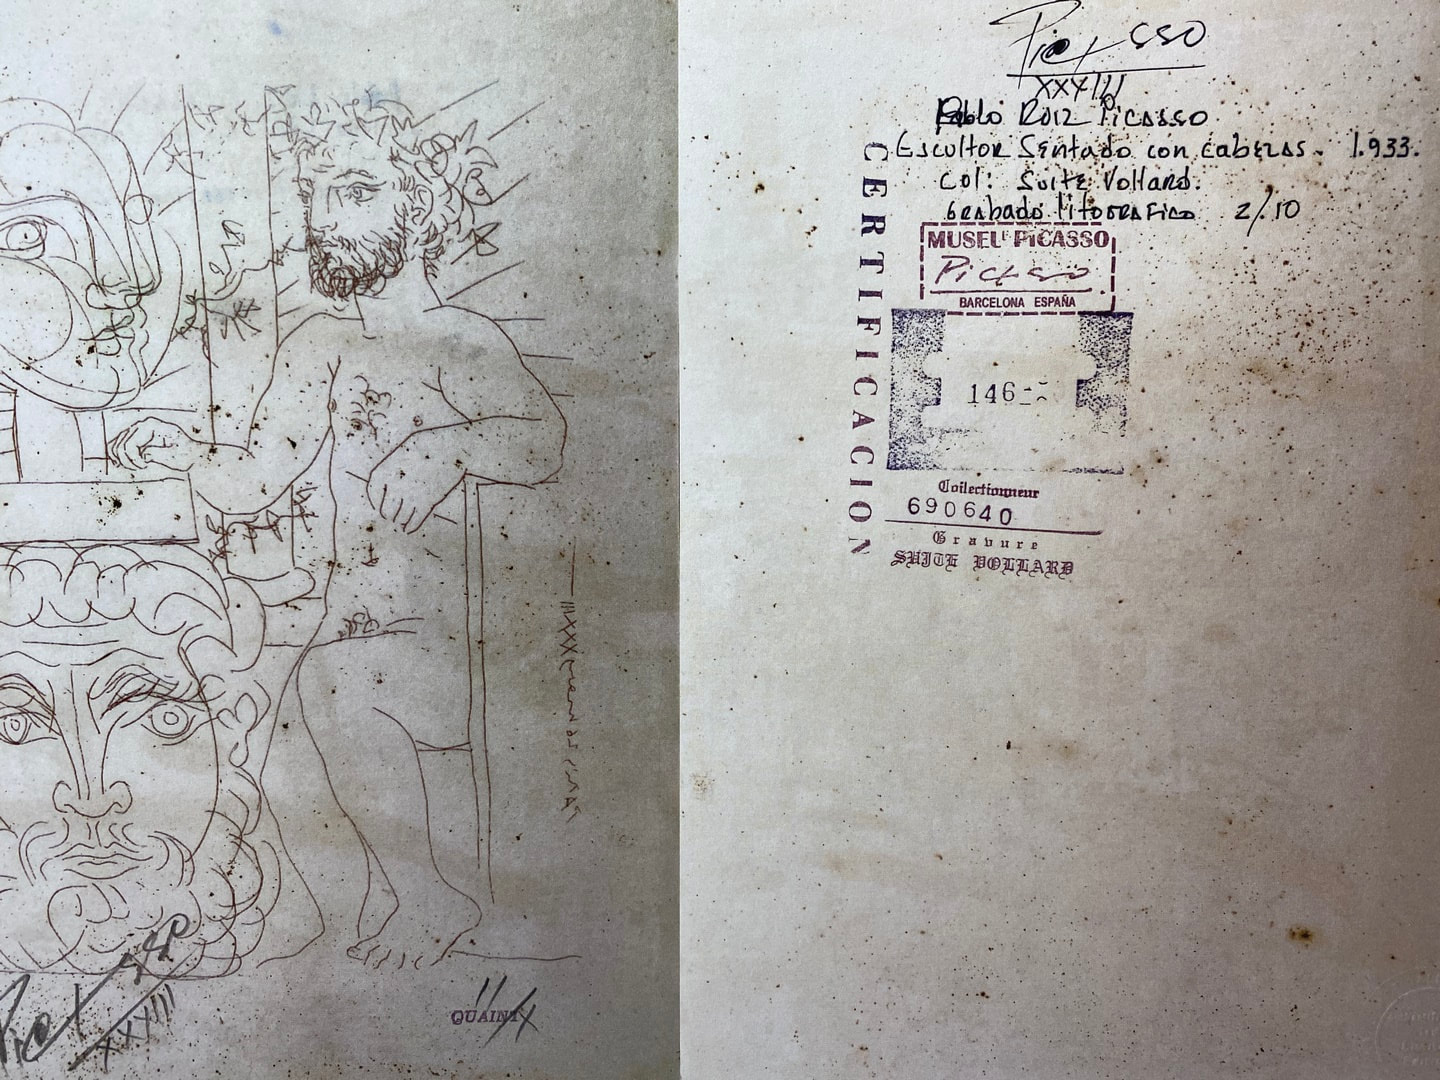 Picasso
XXXIII
QUAINT
Picasso
XXXIII
Pablo Ruiz Picasso
Escultor Sentado con cabezas. 1.933.
Col: Suite Vollard.
Grabado litografico 2/10
CERTIFICACION
MUSEU PICASSO
Picasso
BARCELONA ESPAÑA
146
Collectionneur
690640
Gravure
SUITE VOLLARD